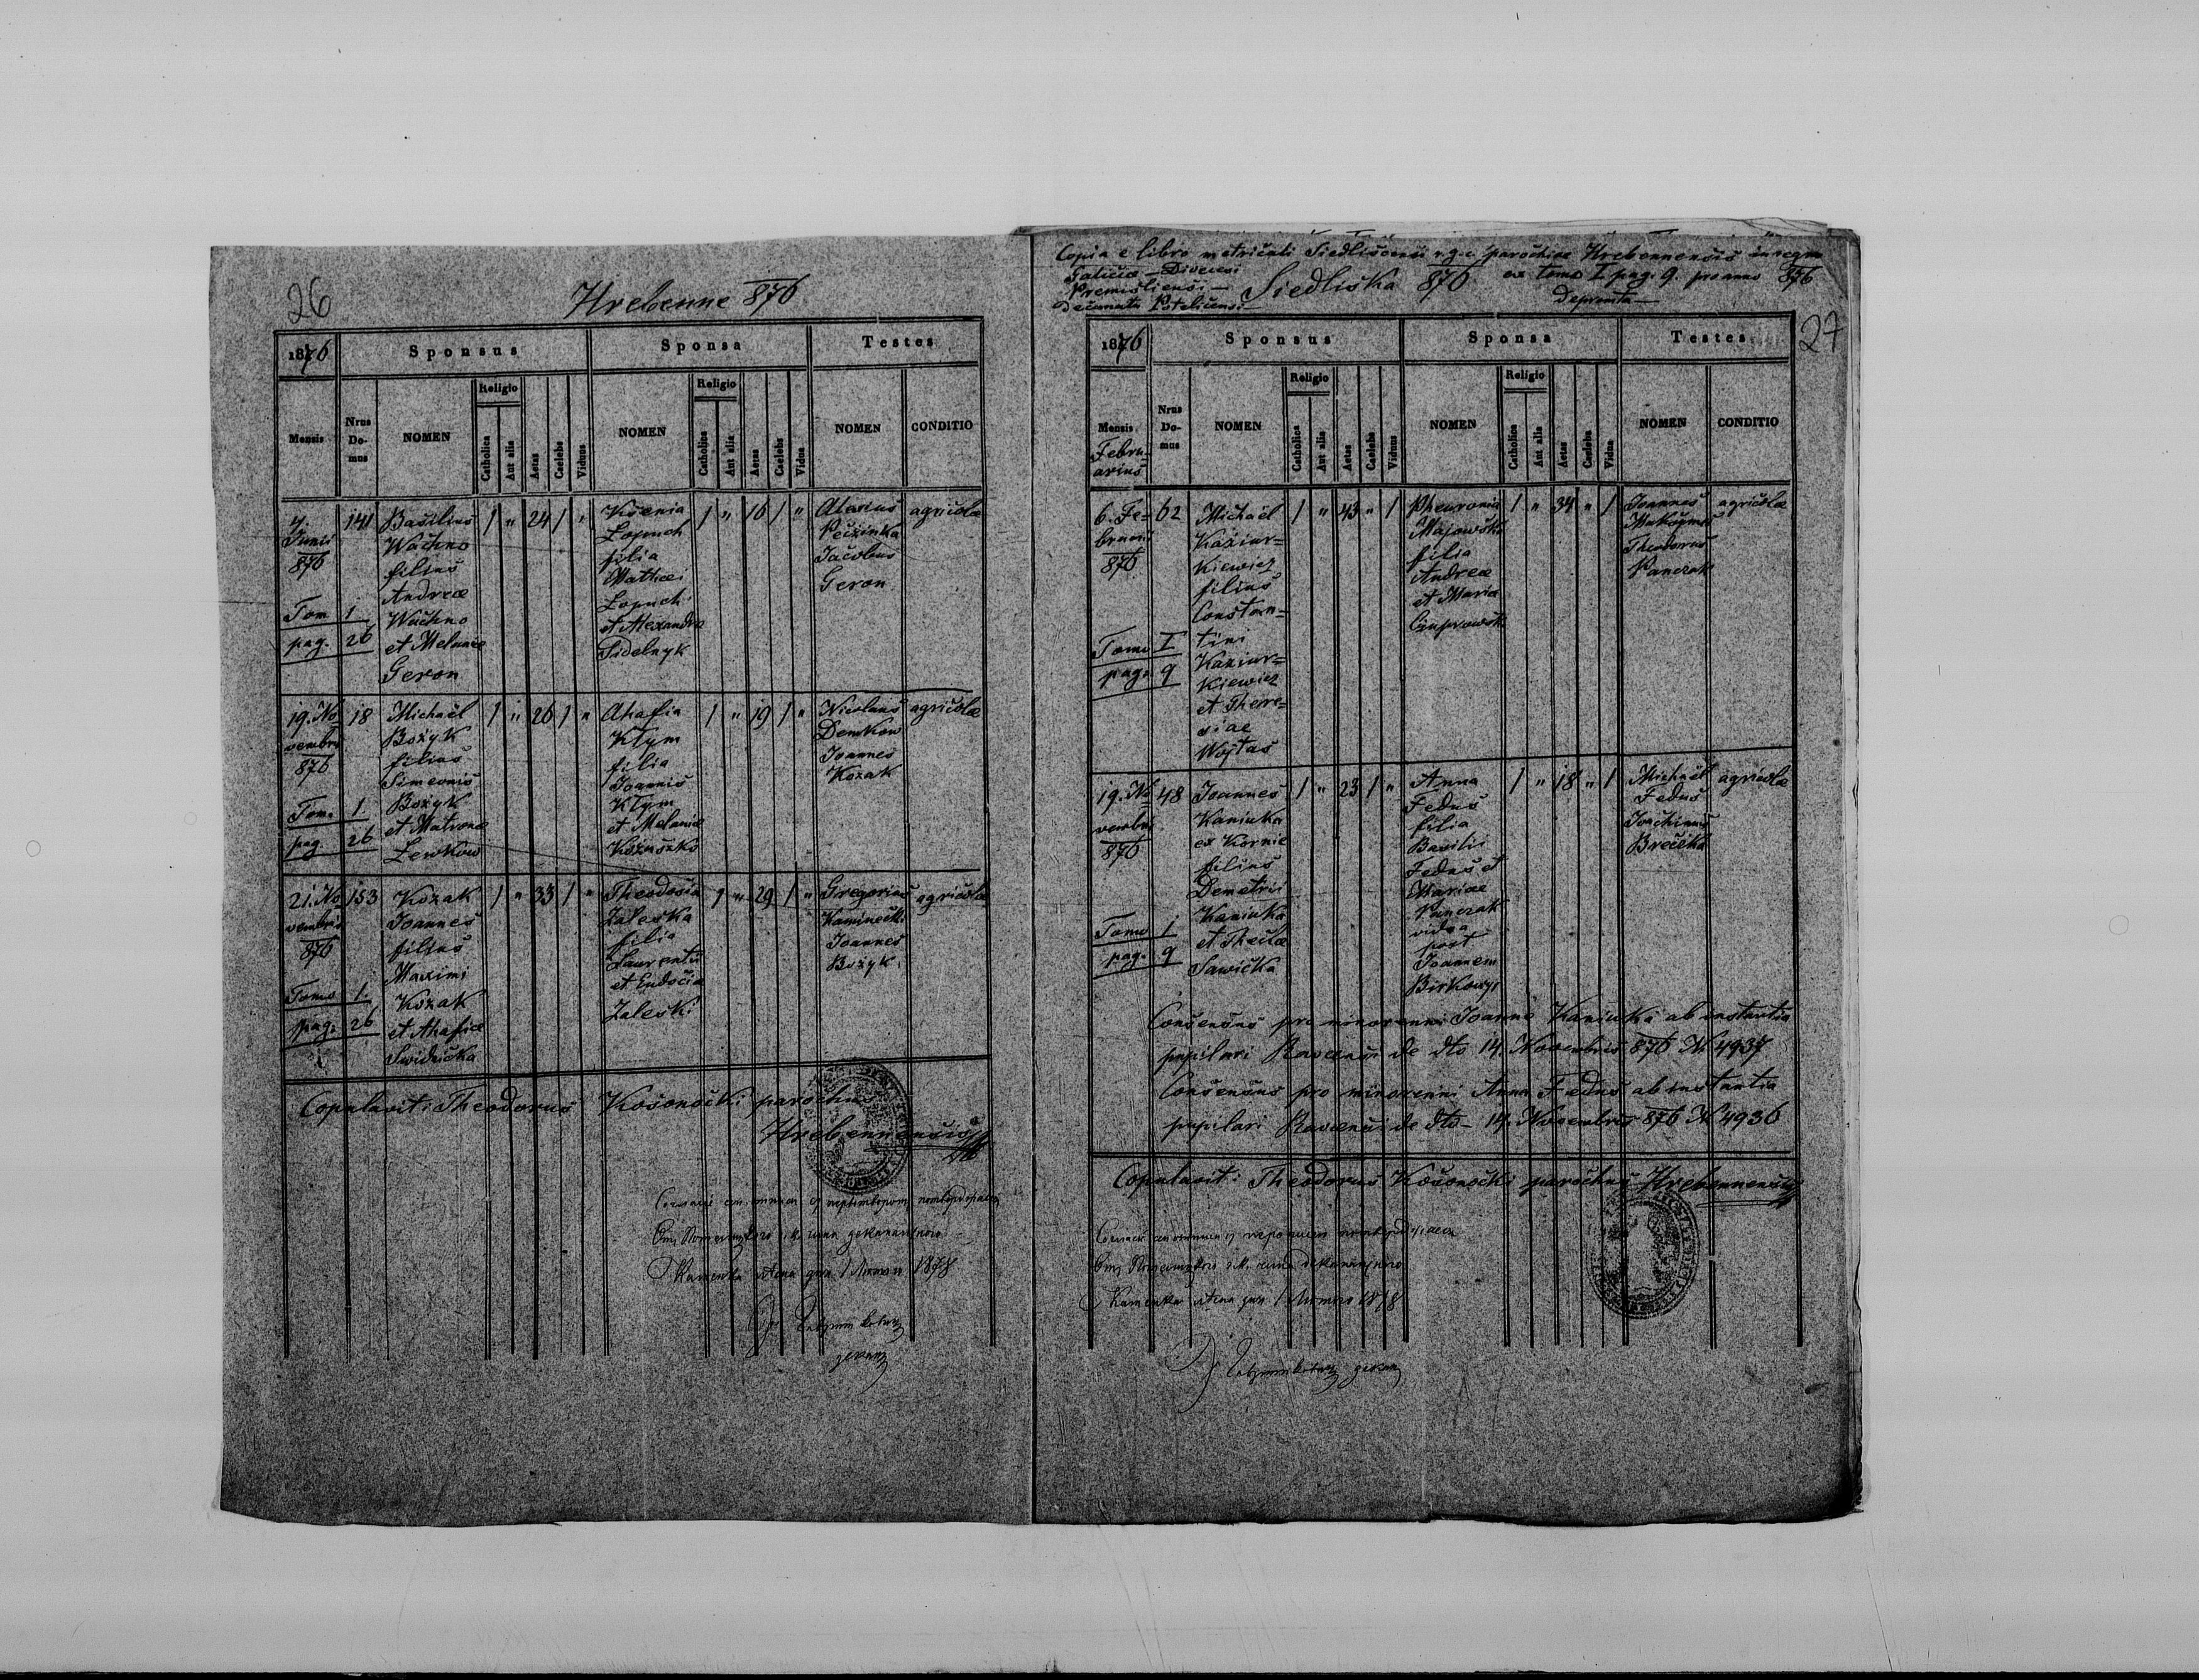 26
Hrebenne 876
1876
Sponsus
Sponsa
Testes
Mensis
Nrus Do- mus
NOMEN
Religio
Catholica
Aut alia
Aetas
Caelebs
Viduus
NOMEN
Religio
Catholica
Aut alia
Aetas
Caelebs
Vidua
NOMEN
CONDITIO
7. Junii 876
Tom 1
pag. 26
141
Basilius
Wachno
filius
Andreæ
Wachno
et Melaniæ
Geron
1 " 24 1 "
Ksenia
Lopuch
filia
Mathei
Lopuch
et Alexandræ
Sidelnyk
1 " 16 1 "
Alexius
Pečzinka
Jacobus
Geron
agricolæ
19. No
vembris
876
Tom. 1.
pag. 26
18
Michaël
Božyk
filius
Simeonis
Božyk
et Matronæ
Lewkow
1 " 26 1 "
Ahafia
Kłym
filia
Joannis
Kłym
et Melaniæ
Kożuszko
1 " 19 1 "
Nicolaus
Demkow
Joannes
Kozak
agricolæ
21. No
vembris
876
Tomo 1.
pag. 26
153
Kozak
Joannes
filius
Maximi
Kozak
et Ahafiæ
Swidnička
1 " 33 1 "
Theodosia
Zaleska
filia
Laurentii
et Eudociæ
Zaleski
1 " 29 1 "
Gregorius
Kaminecki
Joannes
Božyk.
agricolæ
Copulavit: Theodorus Kosonocki parochus
Hrebennensis
1878
Copia e libro metricali Siedliscensi r.g.c. parochiæ Hrebennensis in regno
Galiciæ — Diœcesi
Premisliensi —
Decanatu Potelicensi —
Siedliska 876
ex tomo I pag. 9. pro anno 876
deprompta —
27
1876
Sponsus
Sponsa
Testes
Mensis
Febru-
arius
Nrus Do- mus
NOMEN
Religio
Catholica
Aut alia
Aetas
Caelebs
Viduus
NOMEN
Religio
Catholica
Aut alia
Aetas
Caelebs
Vidua
NOMEN
CONDITIO
6. Fe-
bruarii
876
Tomo I
pag. 9
62
Michaël
Kaziur=
kiewicz
filius
Constan=
tini
Kaziur=
kiewicz
et There=
siae
Wojtas
1 " 43 " 1
Pheuronia
Majowska
filia
Andreæ
et Maria
Ciuprowski
1 " 34 " 1
Joannes
Theodorus
Panczak
agricolæ
19. No
vembris
876
Tomo 1
pag. 9
48
Joannes
Kaniuka
ex Kornie
filius
Demetrii
Kaniuka
et Theclæ
Sawička
1 " 23 1 "
Anna
Feduś
filia
Basilii
Feduś et
Mariae
Panczak
vidua
post
Joannem
Birkowyi
1 " 18 " 1
Michaël
Feduś
Joachimus
Brečzka
agricolæ
Consensus pro minorenni Joanne Kaniuka ab instantia
pupilari Ravensi de dto 14. Novembris 876 N 4937
Consensus pro minorenni Anna Feduś ab instantia
pupilari Ravensi de dto — 14. Novembris 876 N 4936
Copulavit: Theodorus Kosonocki parochus Hrebennensis
1878